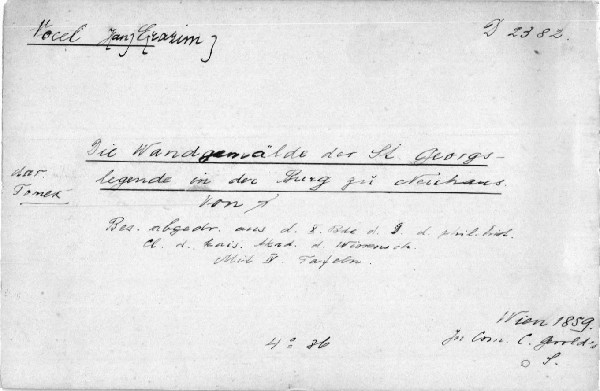 Vocel Jan Erazim
D 2382.
Die Wandgemälde der St Georgs-
legende in der Burg zu Neuhaus.
von
dar.
Tomek
Bes. abgedr. aus d. X. Bde d. D. d. phil. hist.
Cl. d. kais. Akad. d. Wissensch.
Mit IV Tafeln.
Wien 1859.
In Com. C. Gerold's
S.
4° 36